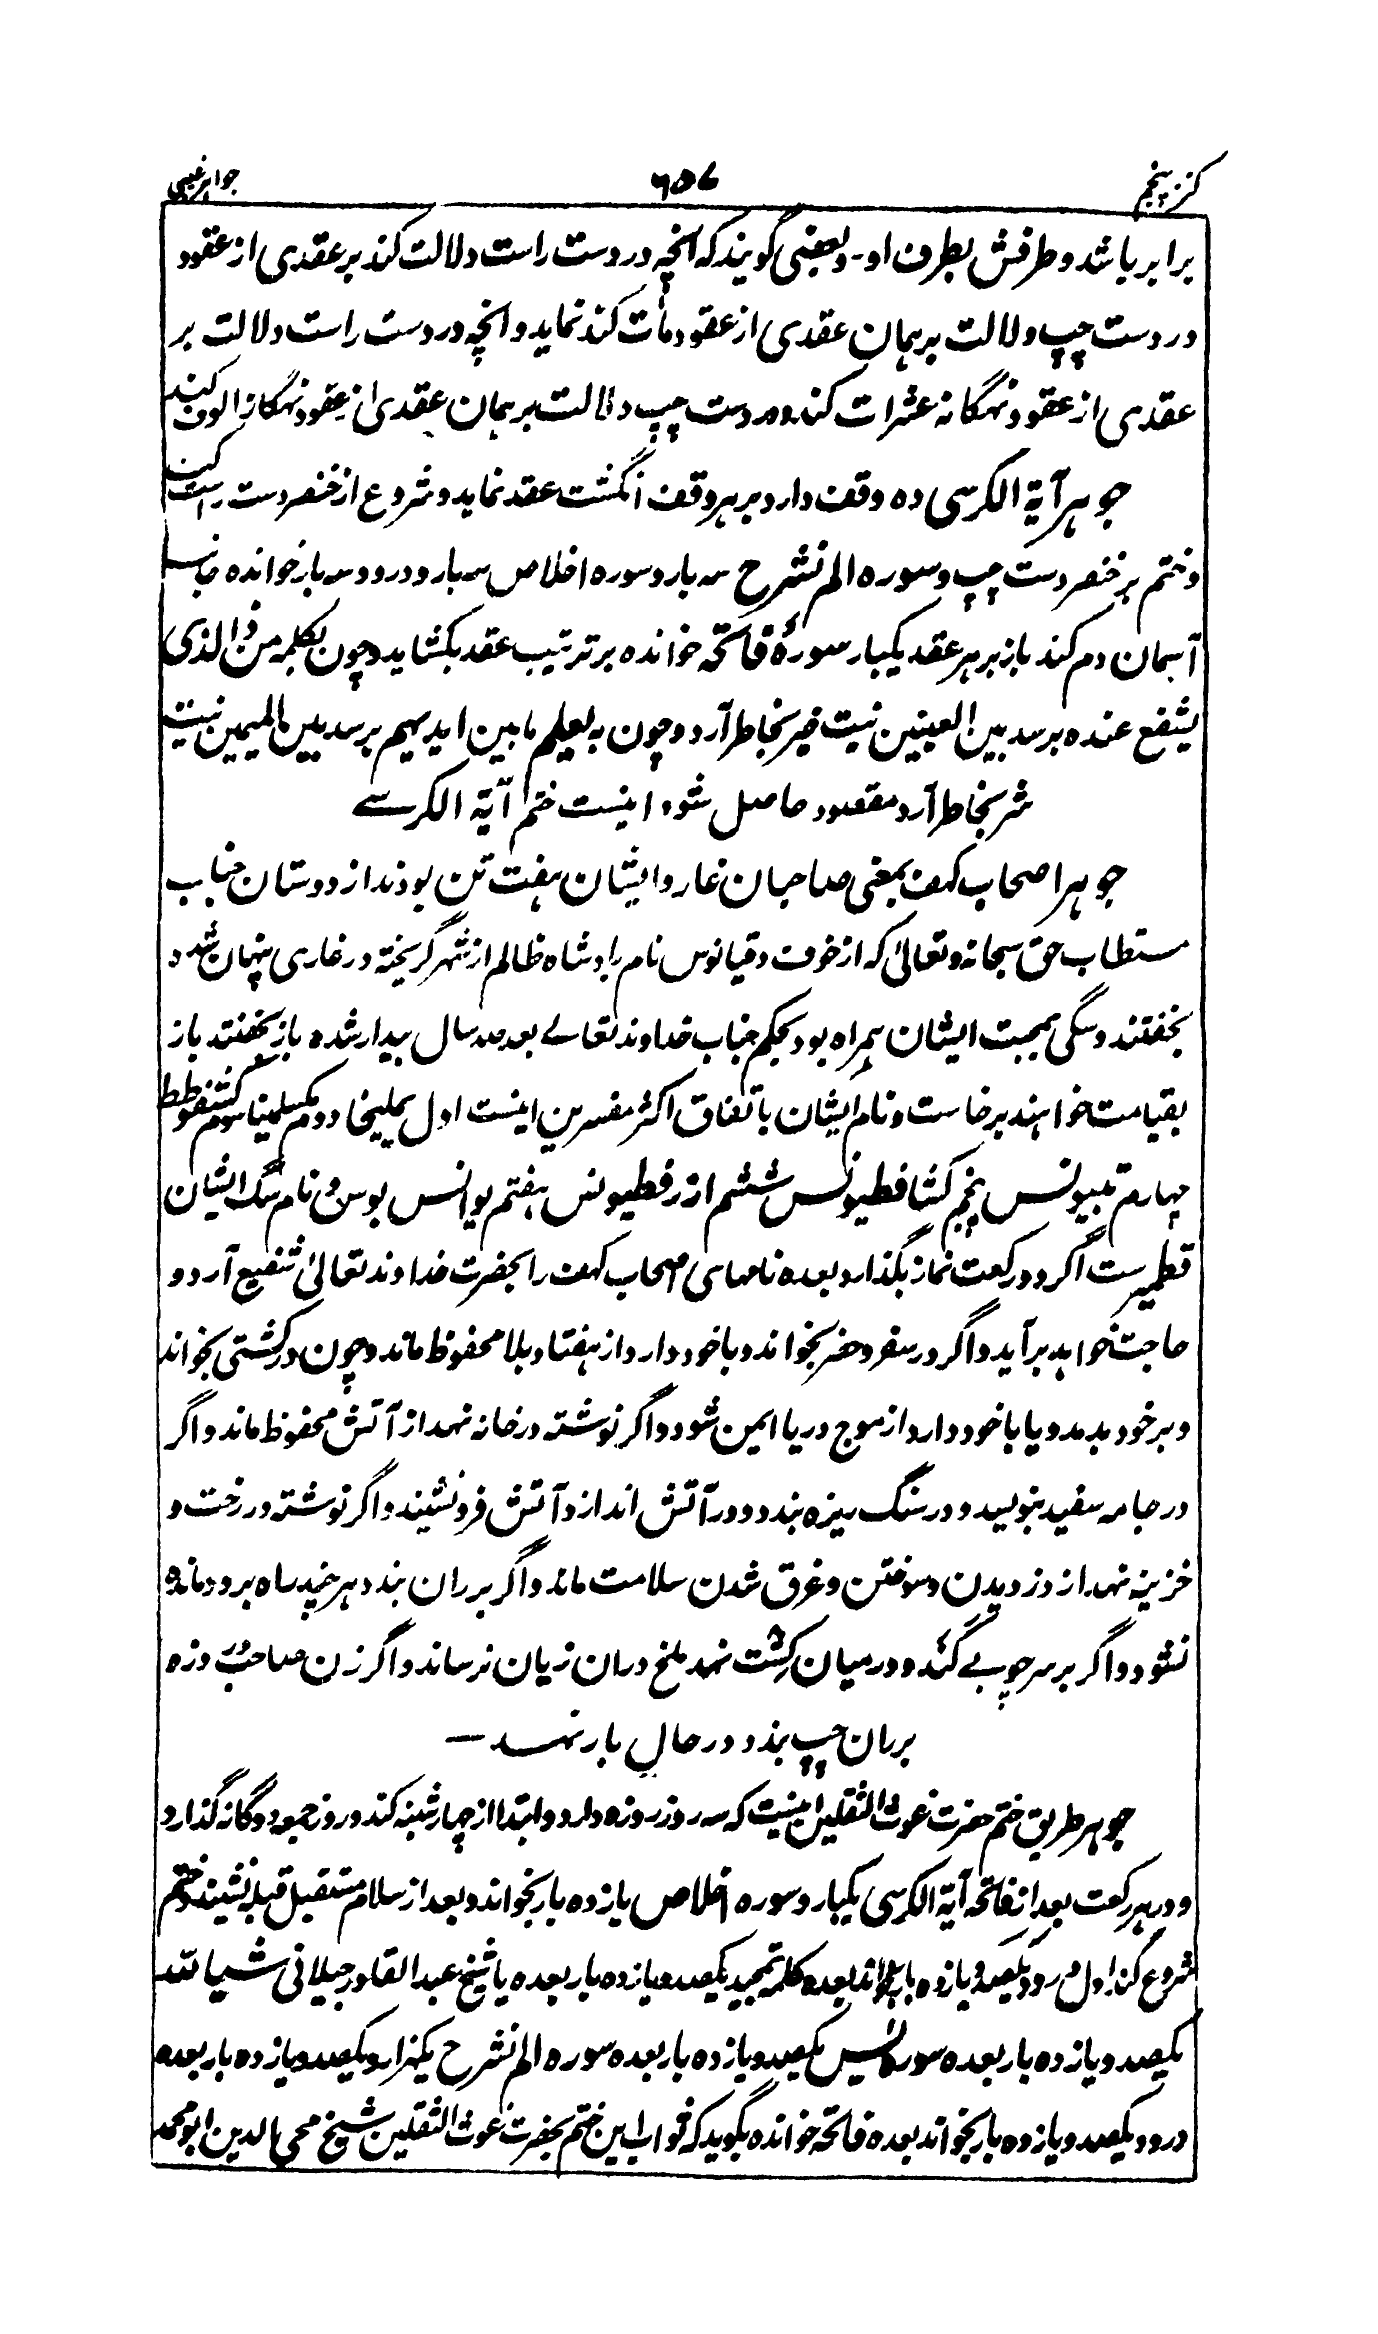 کنز پنجم
۶۵۷
جواهر غیبی
برابر باشد و طرفش بطرف او۔ و بعضی گویند که آنچه در دست راست دلالت کند بر عقدی از عقود
در دست چپ دلالت بر همان عقدی از عقود مآت کند نماید و آنچه در دست راست دلالت بر
عقدی از عقود نهگانه عشرات کند و در دست چپ دلالت بر همان عقدی از عقود نهگانه الوف کند
جوهر آیة الکرسی ده وقف دارد بر هر وقف انگشت عقد نماید و شروع از خنصر دست راست کند
و ختم بر خنصر دست چپ و سوره الم نشرح سه بار و سوره اخلاص سه بار و درود سه بار خوانده جانب
آسمان دم کند باز بر هر عقد یکبار سورۂ فاتحه خوانده بر ترتیب عقد بکشاید و چون بکلمه من ذا الذی
یشفع عنده برسد بین العینین نیت خیر بخاطر آرد و چون به یعلم ما بین ایدیهم برسد بین المیمین نیت
شر بخاطر آرد مقصود حاصل شود اینست ختم آیة الکرسے
جوهر اصحاب کهف بمعنی صاحبان غار و ایشان هفت تن بودند از دوستان جناب
مستطاب حق سبحانه و تعالیٰ که از خوف دقیانوس نام بادشاه ظالم از شهر گریخته در غاری پنهان شدند
بخفتند و سگی بمحبت ایشان همراه بود بحکم جناب خداوند تعالے بعد صد سال بیدار شده باز بخفتند باز
بقیامت خواهند برخاست و نام ایشان باتفاق اکثر مفسرین اینست اول یملیخا دوم مکسلمینا سوم کشفوطط
چهارم تبیونس پنجم کشافطیونس ششم اذرفطیونس هفتم یوانس بوس و نام سگ ایشان
قطمیرست اگر دو رکعت نماز بگذارد بعده نامهای اصحاب کهف را بحضرت خداوند تعالیٰ شفیع آرد و
حاجت خواهد برآید و اگر در سفر و حضر بخواند و با خود دارد از هفتاد بلا محفوظ ماند و چون در کشتی بخواند
و بر خود بدمد و یا با خود دارد از موج دریا ایمن شود و اگر نوشته در خانه نهد از آتش محفوظ ماند و اگر
در جامه سفید بنویسد و در سنگ ریزه بندد و در آتش اندازد آتش فرو نشیند و اگر نوشته در رخت و
خزینه نهد از دزدیدن و سوختن و غرق شدن سلامت ماند و اگر بر ران بندد هر چند راه برود مانده
نشود و اگر بر سر چوبے کند و در میان کِشت نهد ملخ دران زیان نرساند و اگر زن صاحب درد زه
بر ران چپ بندد در حال بار نهد —
جوهر طریق ختم حضرت غوث الثقلین اینست که سه روز روزه دارد و ابتدا از چهار شنبه کند و روز جمعه دوگانه گذارد
و در هر رکعت بعد از فاتحه آیة الکرسی یکبار و سوره اخلاص یازده بار بخواند و بعد از سلام مستقبل قبله نشیند و ختم
شروع کند اول درود یکصد و یازده بار بخواند بعده کلمه تمجید یکصد و یازده بار بعده یا شیخ عبد القادر جیلانی شیأ لله
یکصد و یازده بار بعده سوره یٰس یکصد و یازده بار بعده سوره الم نشرح یکهزار و یکصد و یازده بار بعده
درود یکصد و یازده بار بخواند بعده فاتحه خوانده بگوید که ثواب این ختم بحضرت غوث الثقلین شیخ محی الدین ابو محمد